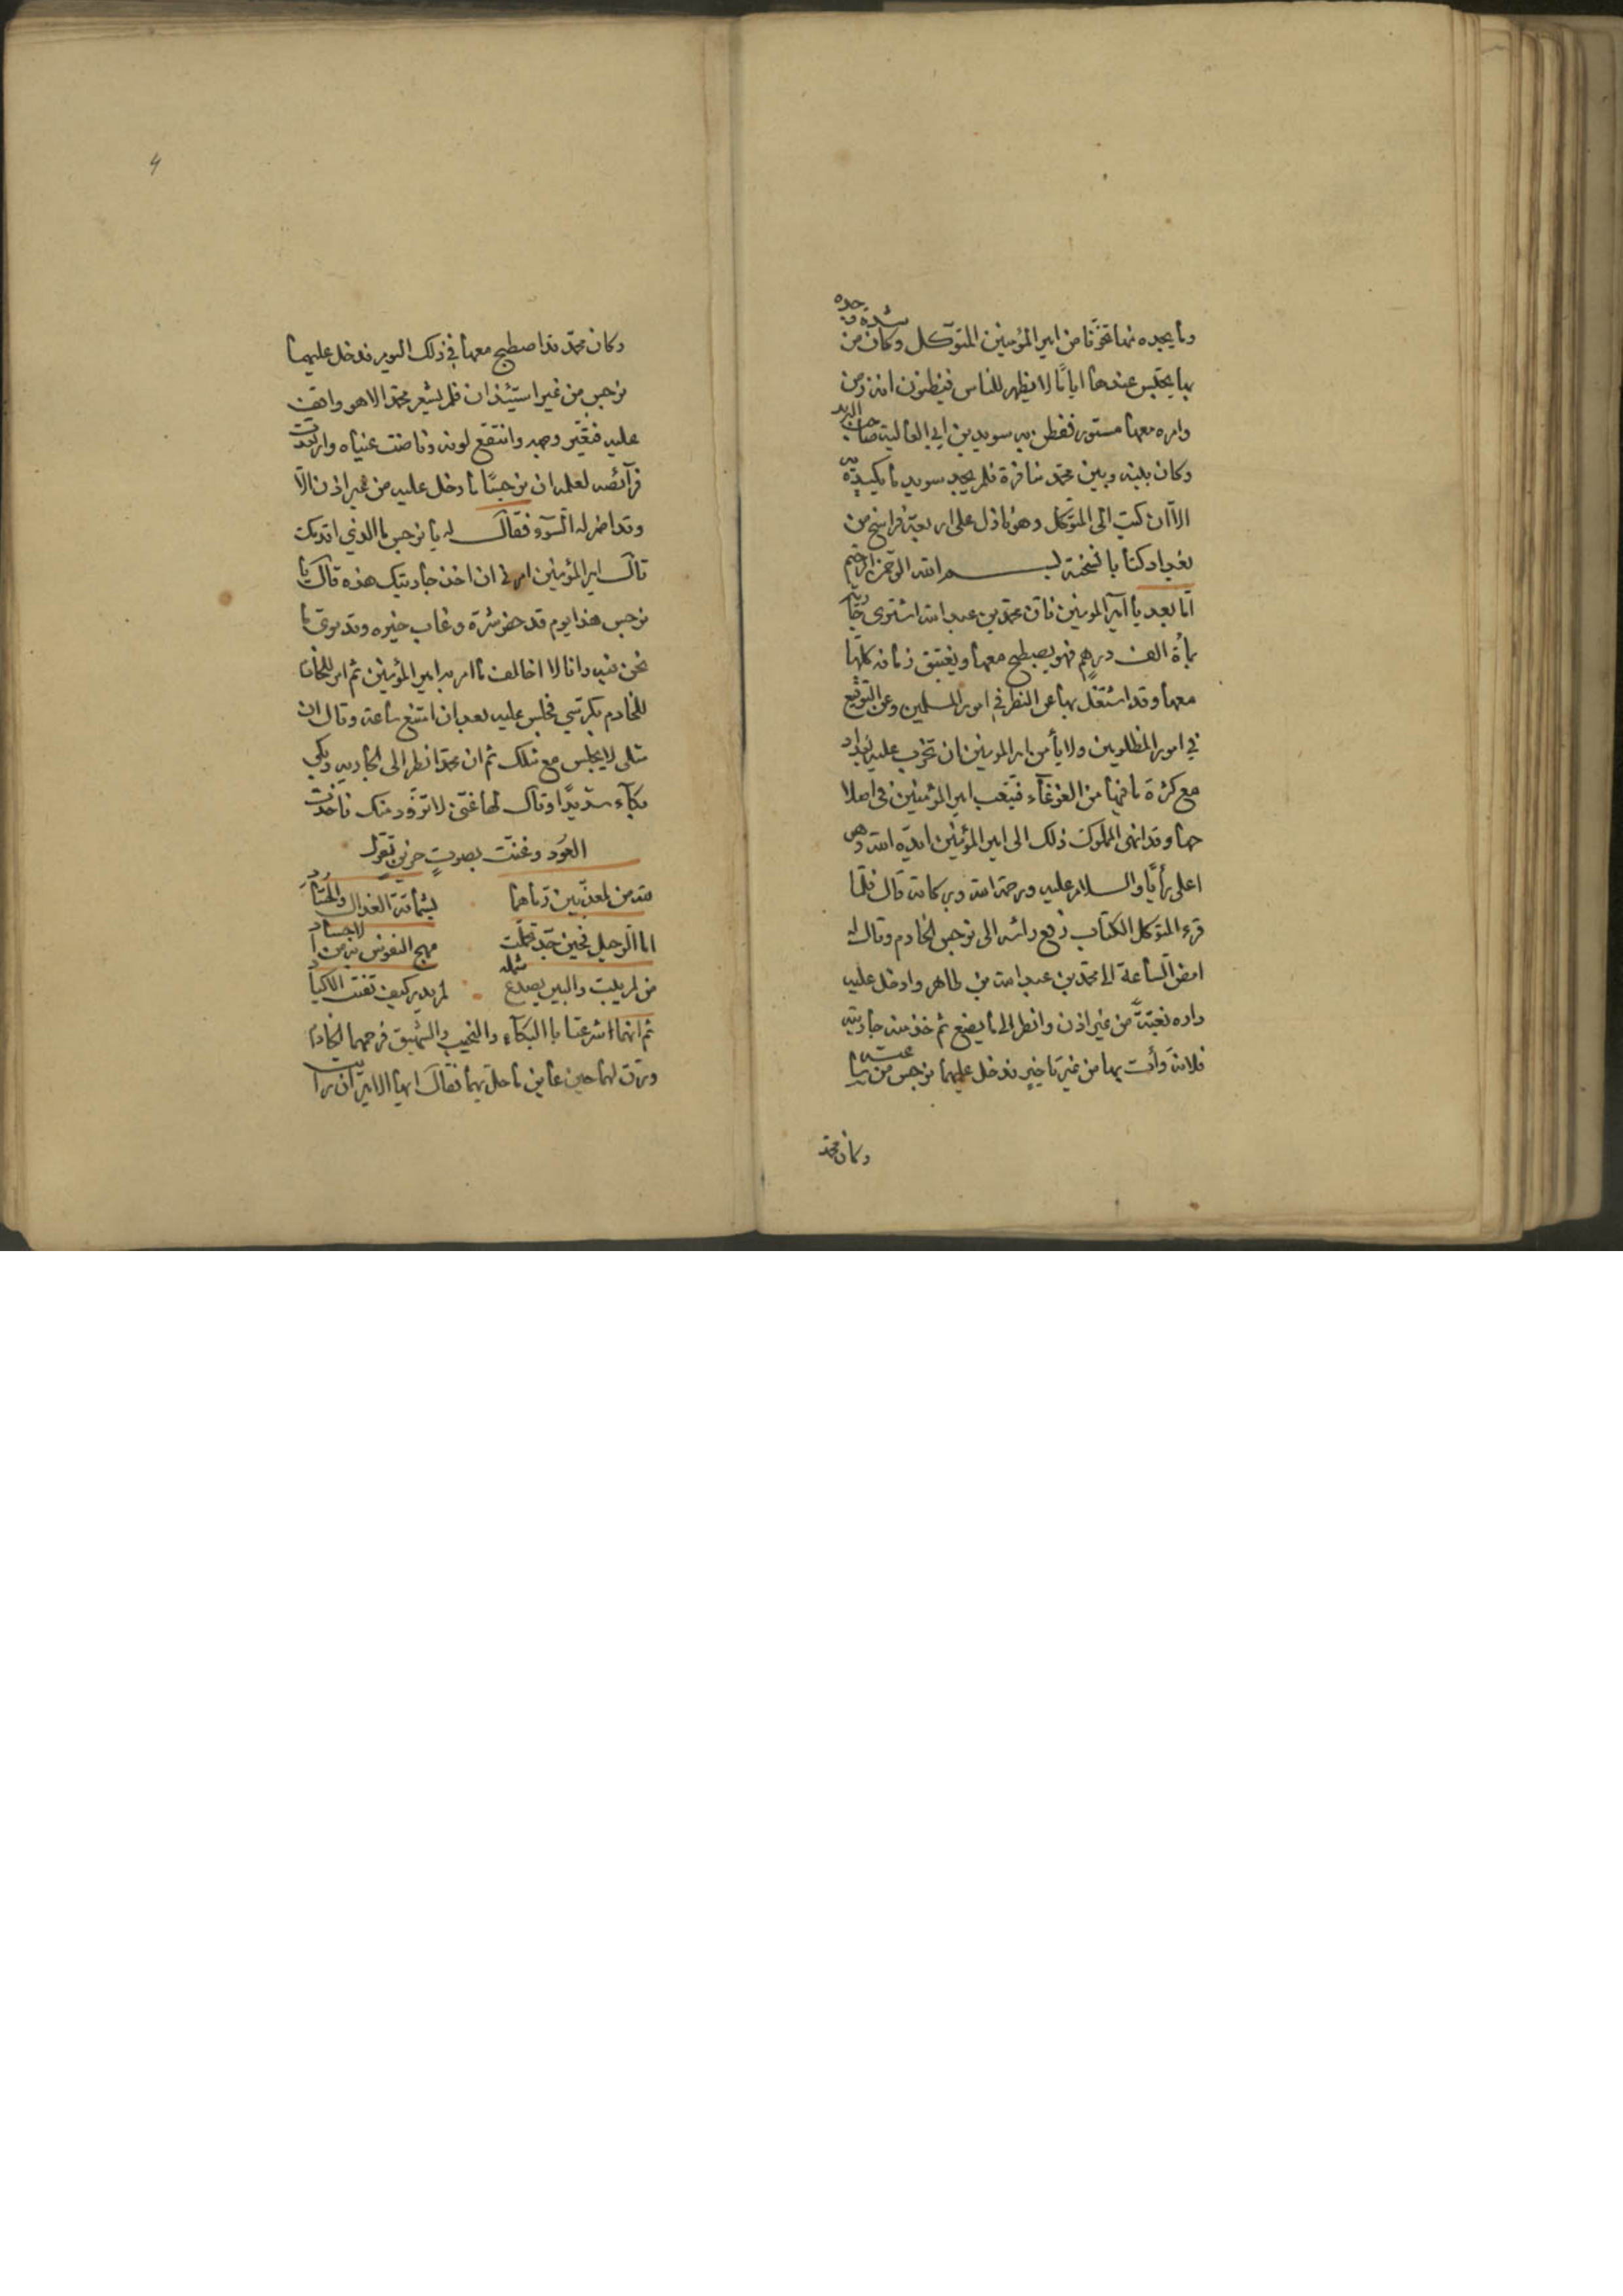 وما يجده بها تخوّفا من امير المؤمنين المتوكل وكان من شدة وجده
بها يحتبس عندها اياما لا يظهر للناس فيظنون انه زمن
وامره معها مستور ففطن به سويد بن ابي العالية صاحب البريد
وكان بينه وبين محمد منافرة فلم يجد سويد ما يكيده به
الا ان كتب الى المتوكل وهو نازل على اربعة فراسخ من
بغداد كتابا نسخته بسم الله الرحمن الرحيم
اما بعد يا امير المومنين فان محمد بن عبد الله اشترى جارية
بمأة الف درهم فهو يصطبح معها ويغتبق زمانه كلها
معها وقد اشتغل بها عن النظر في امور المسلمين وعن التوقيع
في امور المظلومين ولا يأمن امير المومنين ان تخرب عليه بغداد
مع كثرة ما فيها من الغوغآء فيتعب امير المؤمنين في اصلا
حها وقد انهى المملوك ذلك الى امير المؤمنين ايده الله وهو
اعلى رأيا والسلام عليه ورحمة الله وبركاته قال فلما
قرء المتوكل الكتاب رفع رأسه الى نرجس الخادم وقال له
امض الساعة الى محمد بن عبد الله بن طاهر وادخل عليه
داره بغتة من غير اذن وانظر الى ما يصنع ثم خذ منه جاريته
فلانة وأت بها من غير تاخير فدخل عليهما نرجس من ساعته
وكان محمد
4
وكان محمد قد اصطبح معها في ذلك اليوم فدخل عليهما
نرجس من غير استيئذان فلم يشعر محمد الا هو واقف
عليه فتغير وجهه وانتقع لونه وفاضت عيناه وارتعدت
فرآئصه لعلمه ان نرجسا ما دخل عليه من غير اذن الا
وقد اضمر له السوء فقال له يا نرجس ما الذي اقدمك
قال امير المؤمنين امرني ان اخذ جاريتك هذه قال يا
نرجس هذا يوم قد حضر شره وغاب خيره وقد ترى ما
نحن فيه وانا لا اخالف ما امر به امير المؤمنين ثم امر للخاد
للخادم بكرسي فجلس عليه بعد ان امتنع ساعة وقال ان
مثلى لا يجلس مع مثلك ثم ان محمدا نظر الى الجارية وبكى
بكآء شديدا وقال لها غني لاتزود منك فاخذت
العود وغنت بصوت حزين تقول
لله من لمعذبين رماهما
بشماتة العذال والحساد
اما الرحيل فحين جد ترحلت
مهج النفوس به من الاجساد
من لم يبت والبين يصدع شمله
لم يدر كيف تفتت الاكباد
ثم انهما اشرعتا بالبكآء والنحيب والشهيق فرحمهما الخادم
ورق لهما حين عاين ما حل بهما فقال ايها الامير ان رأيت